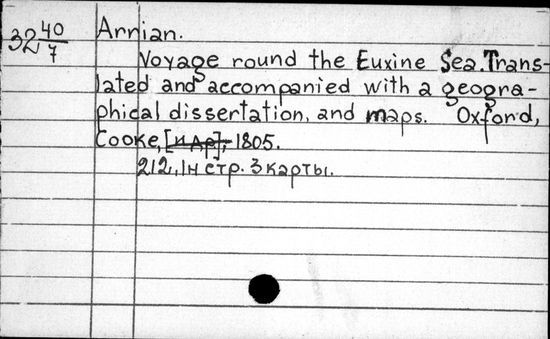 32 40/7
Arrian.
Voyage round the Euxine Sea. Trans-
lated and accompanied with a geogra-
phical dissertation, and maps. Oxford,
Cooke, [и др], 1805.
212, 1н стр. 3 карты.